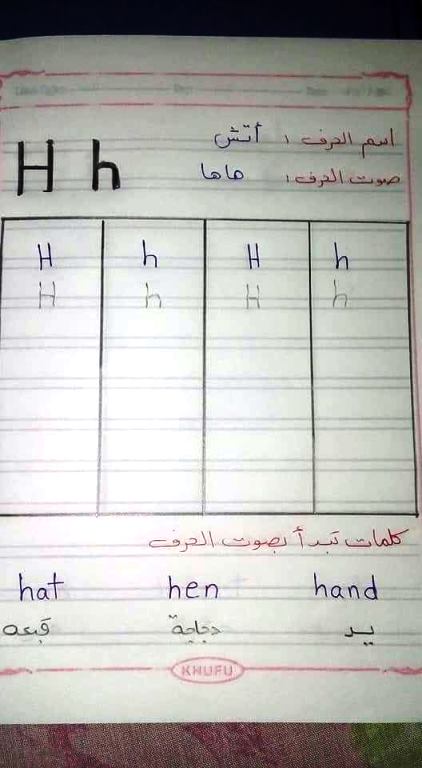 H h
اسم الحرف : أتش
صوت الحرف : هاها
H h H h
H h H h
كلمات تبدأ بصوت الحرف
hat hen hand
قبعه دجاجة يد
KHUFU